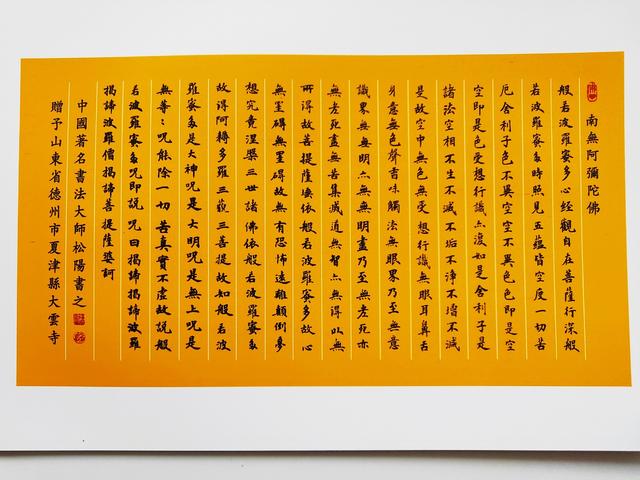 南無阿彌陀佛
般若波羅蜜多心经觀自在菩薩行深般
若波羅蜜多時照見五蘊皆空度一切苦
厄舍利子色不異空空不異色色即是空
空即是色受想行識亦復如是舍利子是
諸法空相不生不滅不垢不淨不增不減
是故空中無色無受想行識無眼耳鼻舌
身意無色聲香味觸法無眼界乃至無意
識界無無明亦無無明盡乃至無老死亦
無老死盡無苦集滅道無智亦無得以無
所得故菩提薩埵依般若波羅蜜多故心
無罣礙無罣礙故無有恐怖遠離顛倒夢
想究竟涅槃三世諸佛依般若波羅蜜多
故得阿耨多羅三藐三菩提故知般若波
羅蜜多是大神呪是大明呪是無上呪是
無等：呪能除一切苦真實不虛故說般
若波羅蜜多呪即說呪曰揭諦揭諦波羅
揭諦波羅僧揭諦菩提薩婆訶
中國著名書法大師松陽書之
贈予山東省德州市夏津縣大雲寺